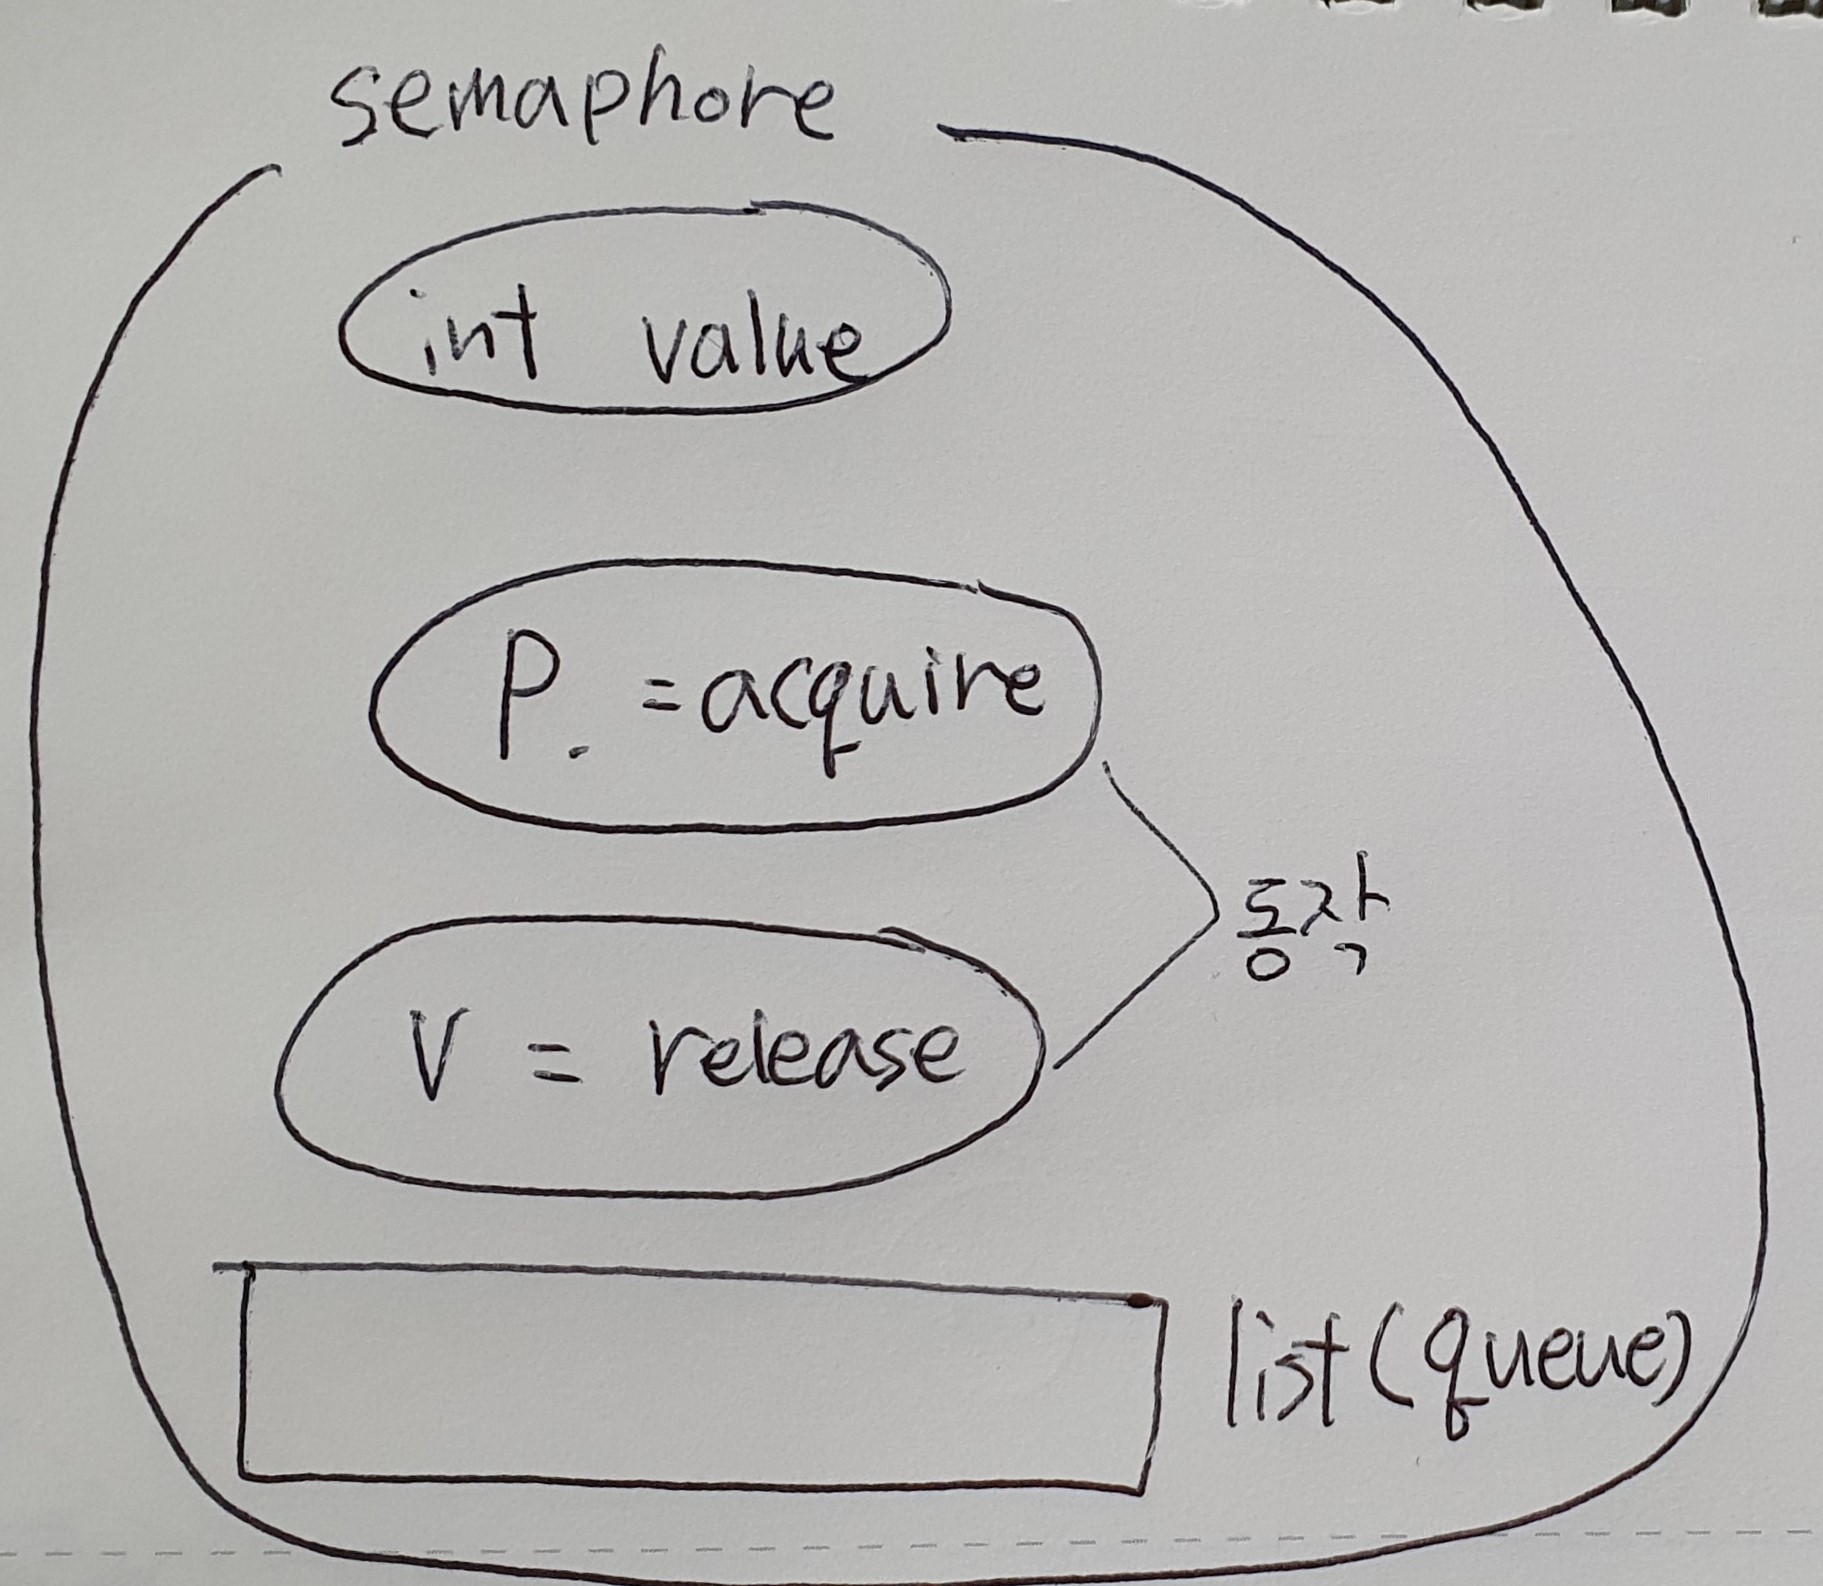 semaphore
int value
P. = acquire
V = release
동작
list(queue)